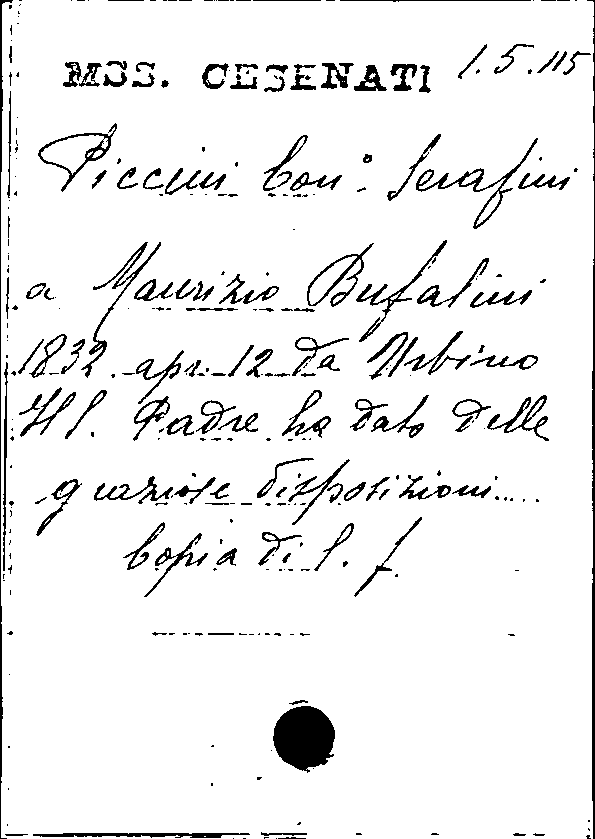 MSS. CESENATI 1.5.115
Piccini Con° Serafini
a Maurizio Bufalini
1832 apr. 12 da Urbino
Il S. Padre ha dato delle
graziose disposizioni.....
copia di l. f.